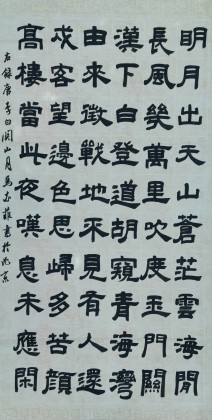 明月出天山蒼茫雲海閒
長風幾萬里吹度玉門關
漢下白登道胡窺青海灣
由來徵戰地不見有人還
戍客望邊色思歸多苦顏
高樓當此夜嘆息未應閑
右錄唐李白関山月馬書於